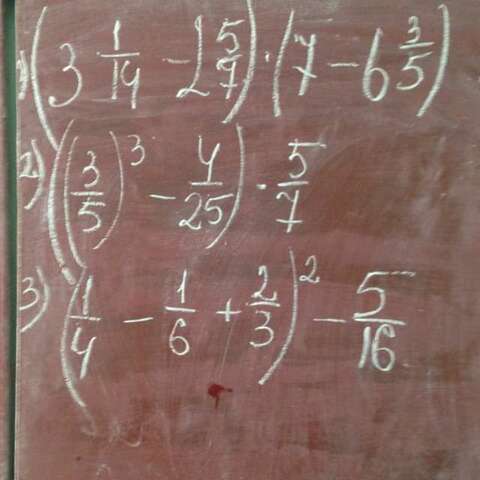 1) (3 1/14 - 2 5/7) · (7 - 6 3/5)
2) ((3/5)^3 - 4/25) · 5/7
3) (1/4 - 1/6 + 2/3)^2 - 5/16